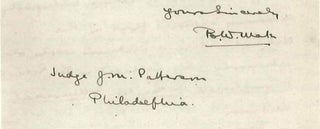 Yours Sincerely
Judge J. M. Patterson
Philadelphia.